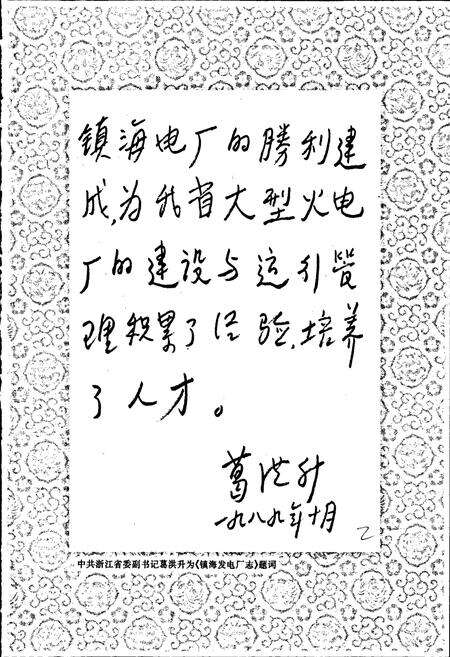 镇海电厂的勝利建
成,为我省大型火电
厂的建设与运行管
理积累了经验,培养
了人才。
葛洪升
一九八九年十月
2
中共浙江省委副书记葛洪升为《镇海发电厂志》题词